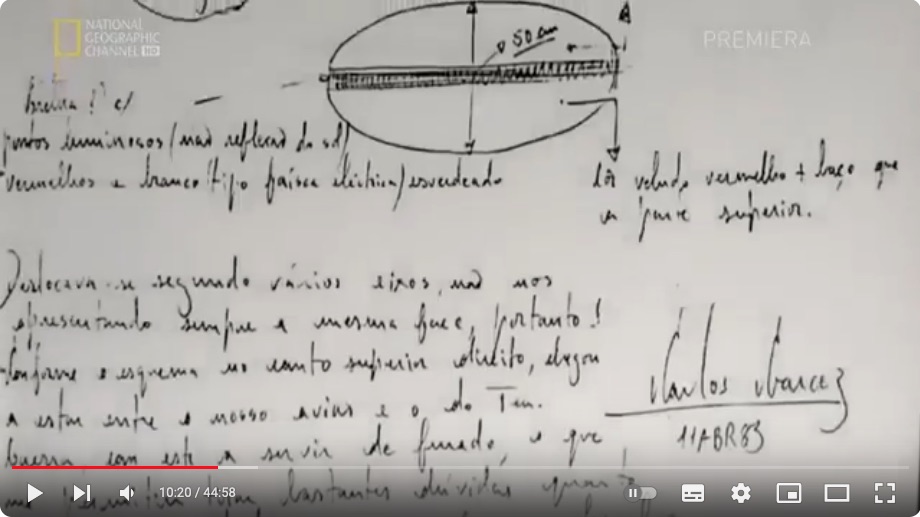 NATIONAL
GEOGRAPHIC
CHANNEL HD
PREMIERA
50 cm
c/
pontos luminosos (não reflexão do sol)
vermelhos e branco (tipo faísca eléctrica) esverdeado
côr veludo vermelho + baço que
a parte superior.
Deslocava-se segundo vários eixos, não nos
apresentando sempre a mesma face, portanto!
Conforme o esquema no canto superior direito, chegou
a estar entre o nosso avião e o do Ten.
com este a servir de fundo, o que
bastantes dúvidas quanto
11ABR83
10:20 / 44:58